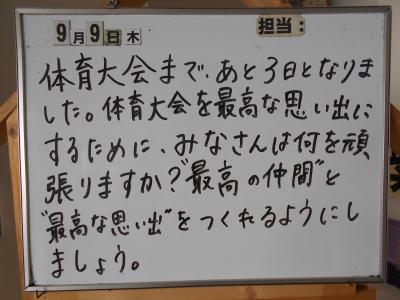 9月9日木 担当:
体育大会まで、あと3日となりま
した。体育大会を最高な思い出に
するために、みなさんは何を頑
張りますか?"最高の仲間"と
"最高な思い出"をつくれるようにし
ましょう。